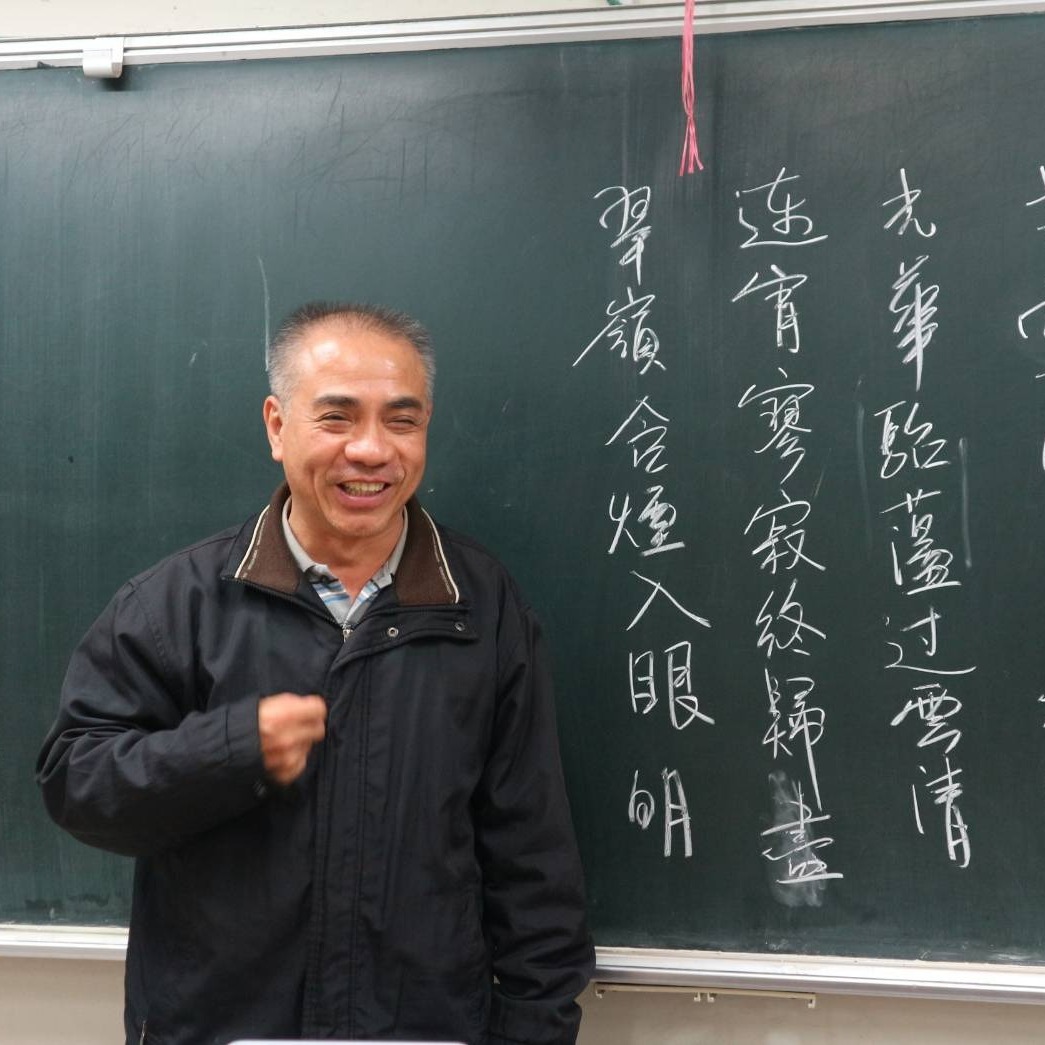 光華駘蕩过雲清
連宵寥寂終歸盡
翠嶺含煙入眼明